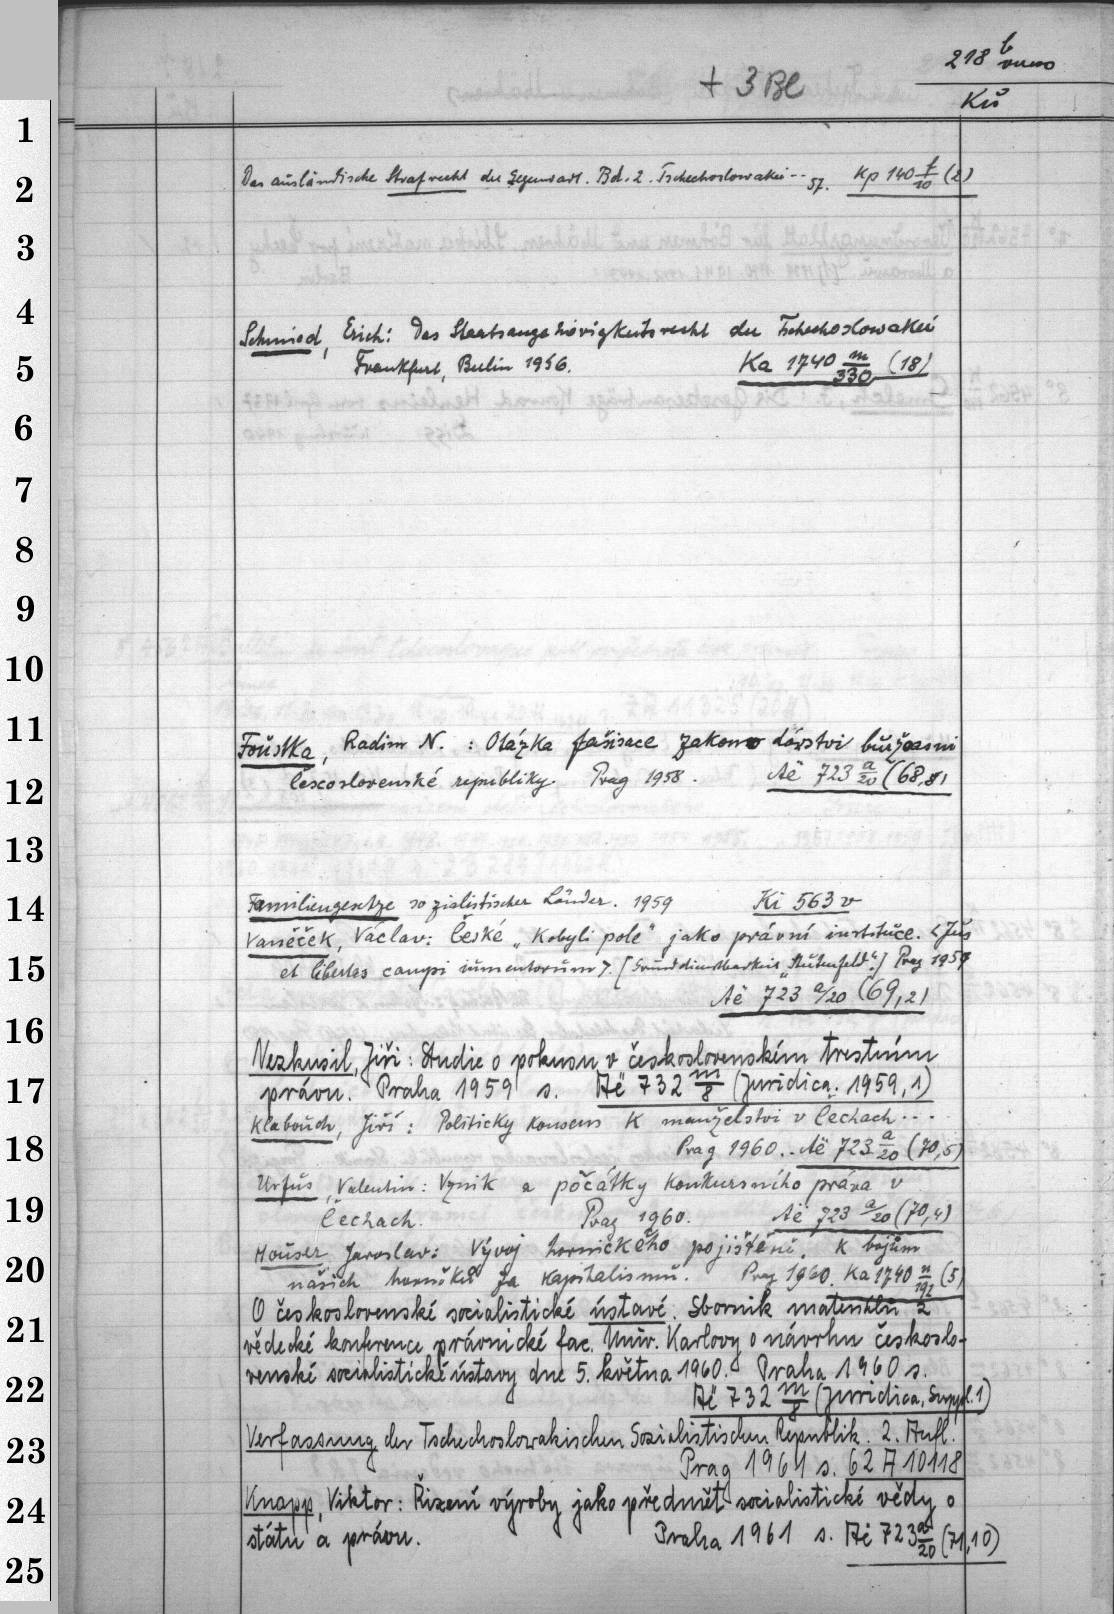 218 b
+ 3 Bl
Kü
1
2
Das ausländische Strafrecht der Gegenwart. Bd. 2. Tschechoslowakei -- 57. Kp 140 f/10 (2)
3
4
Schmied, Erich: Das Staatsangehörigkeitsrecht der Tschechoslowakei
5
Frankfurt, Berlin 1956. Ka 1740 m/330 (18)
6
7
8
9
10
11
Foustka, Radim N. : Otázka fašisace zakonodárství buržoasni
12
Československé republiky. Prag 1958. Aë 723 a/20 (68,8)
13
14
Familiengesetze sozialistischer Länder. 1959 Ki 563 v
Vaněček, Václav: České „Kobylí pole" jako právní instituce. <Jus
15
et libertas campi iumentorum>. [Grunddienstbarkeit „Stutenfeld".] Prag 1959
Aë 723 a/20 (69,2)
16
Nezkusil, Jiři: Studie o pokusu v československém trestním
17
právu. Praha 1959 s. Aë 732 m/8 (Juridica. 1959,1)
Klabouch, Jiří: Politicky konsens k manželstvi v Čechach ...
18
Prag 1960. Aë 723 a/20 (70,5)
Urfus, Valentin: Vznik a počátky konkursního práva v
19
Čechach. Prag 1960. Aë 723 a/20 (70,4)
Houser, Jaroslav: Vývoj hornického pojištění. K bojům
20
našich horníků za kapitalismu. Prag 1960. Ka 1740 n/192 (5)
O československé socialistické ústavé. Sbornik materiálů z
21
vědecké konference právnické fac. Univ. Karlovy o návrhu českoslo-
venské socialistické ústavy dne 5. května 1960. Praha 1960 s.
22
Aë 732 m/8 (Juridica, Suppl. 1)
Verfassung der Tschechoslowakischen Sozialistischen Republik. 2. Aufl.
23
Prag 1961 s. 62 A 10118
Knapp, Viktor: Řizení výroby jako předmět socialistické vědy o
24
státu a právu. Praha 1961 s. Aë 723 a/20 (71,10)
25